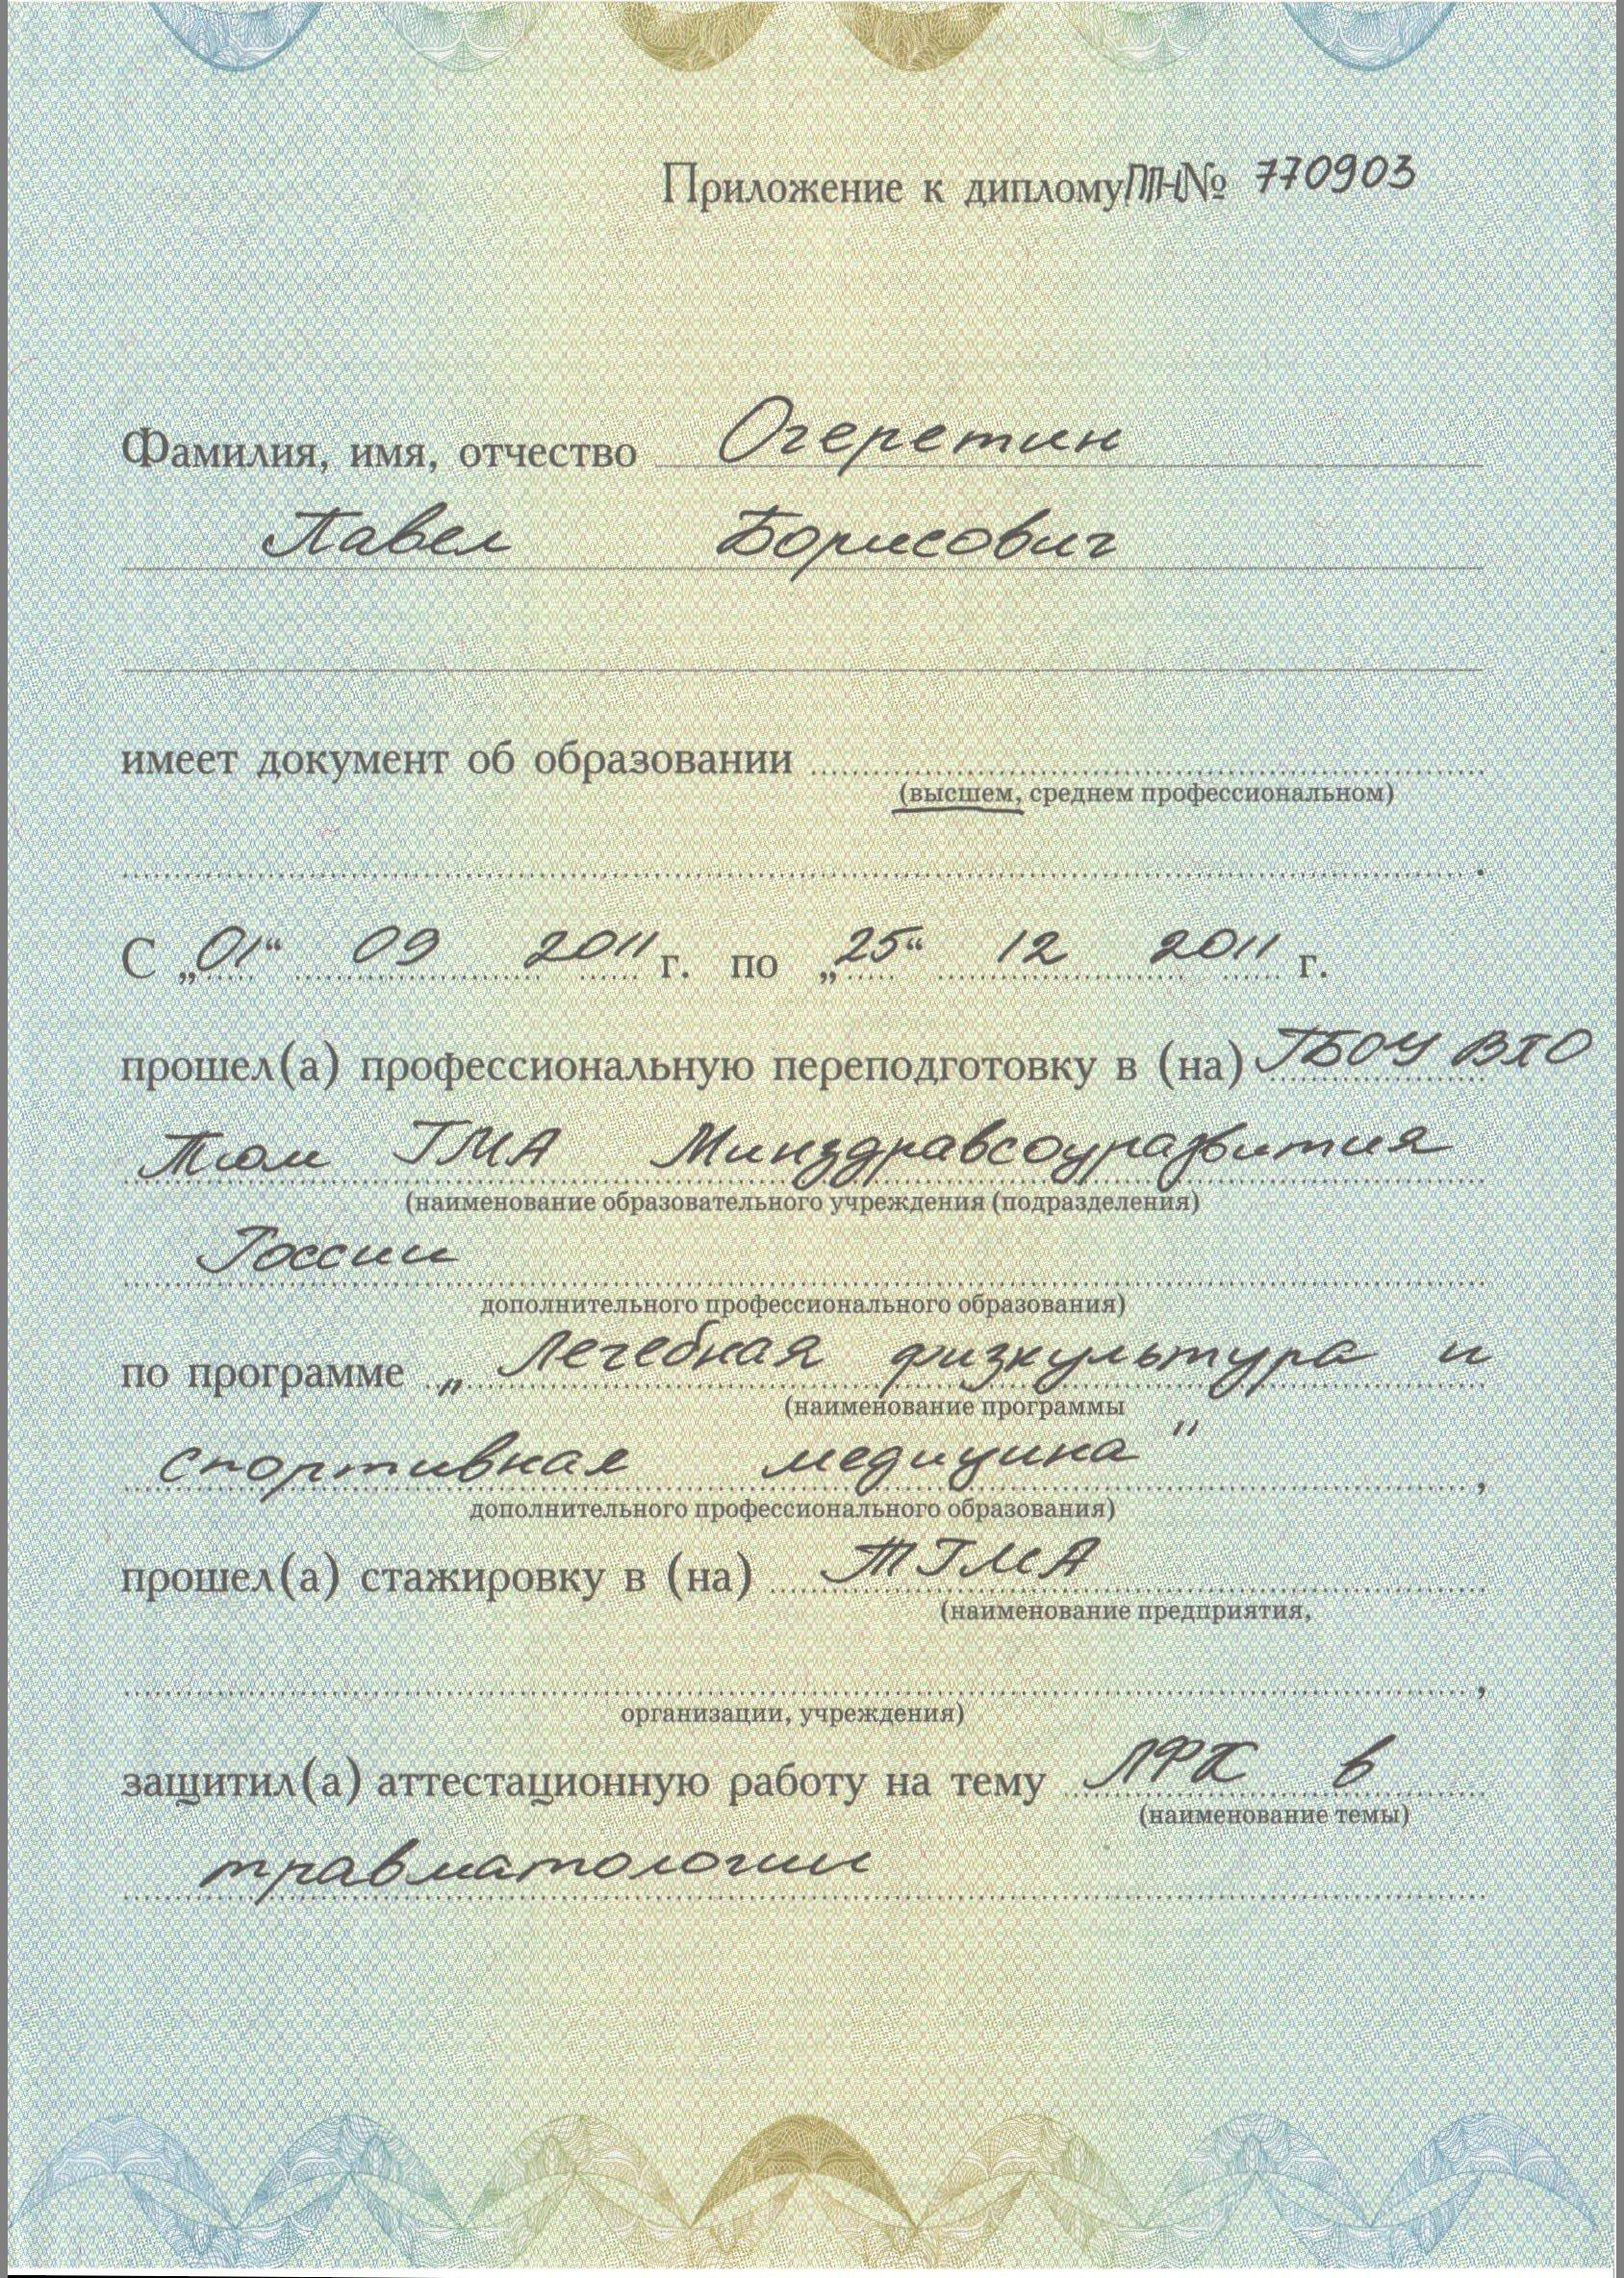 Приложение к диплому ПП-I № 770903
Фамилия, имя, отчество Огеретин
Павел Борисович
имеет документ об образовании
(высшем, среднем профессиональном)
С „01“ 09 2011 г. по „25“ 12 2011 г.
прошел(а) профессиональную переподготовку в (на) ГБОУ ВПО
Тюм ГМА Минздравсоцразвития
(наименование образовательного учреждения (подразделения)
России
дополнительного профессионального образования)
по программе „Лечебная физкультура и
(наименование программы
спортивная медицина",
дополнительного профессионального образования)
прошел(а) стажировку в (на) ТГМА
(наименование предприятия,
,
организации, учреждения)
защитил(а) аттестационную работу на тему ЛФК в
(наименование темы)
травматологии